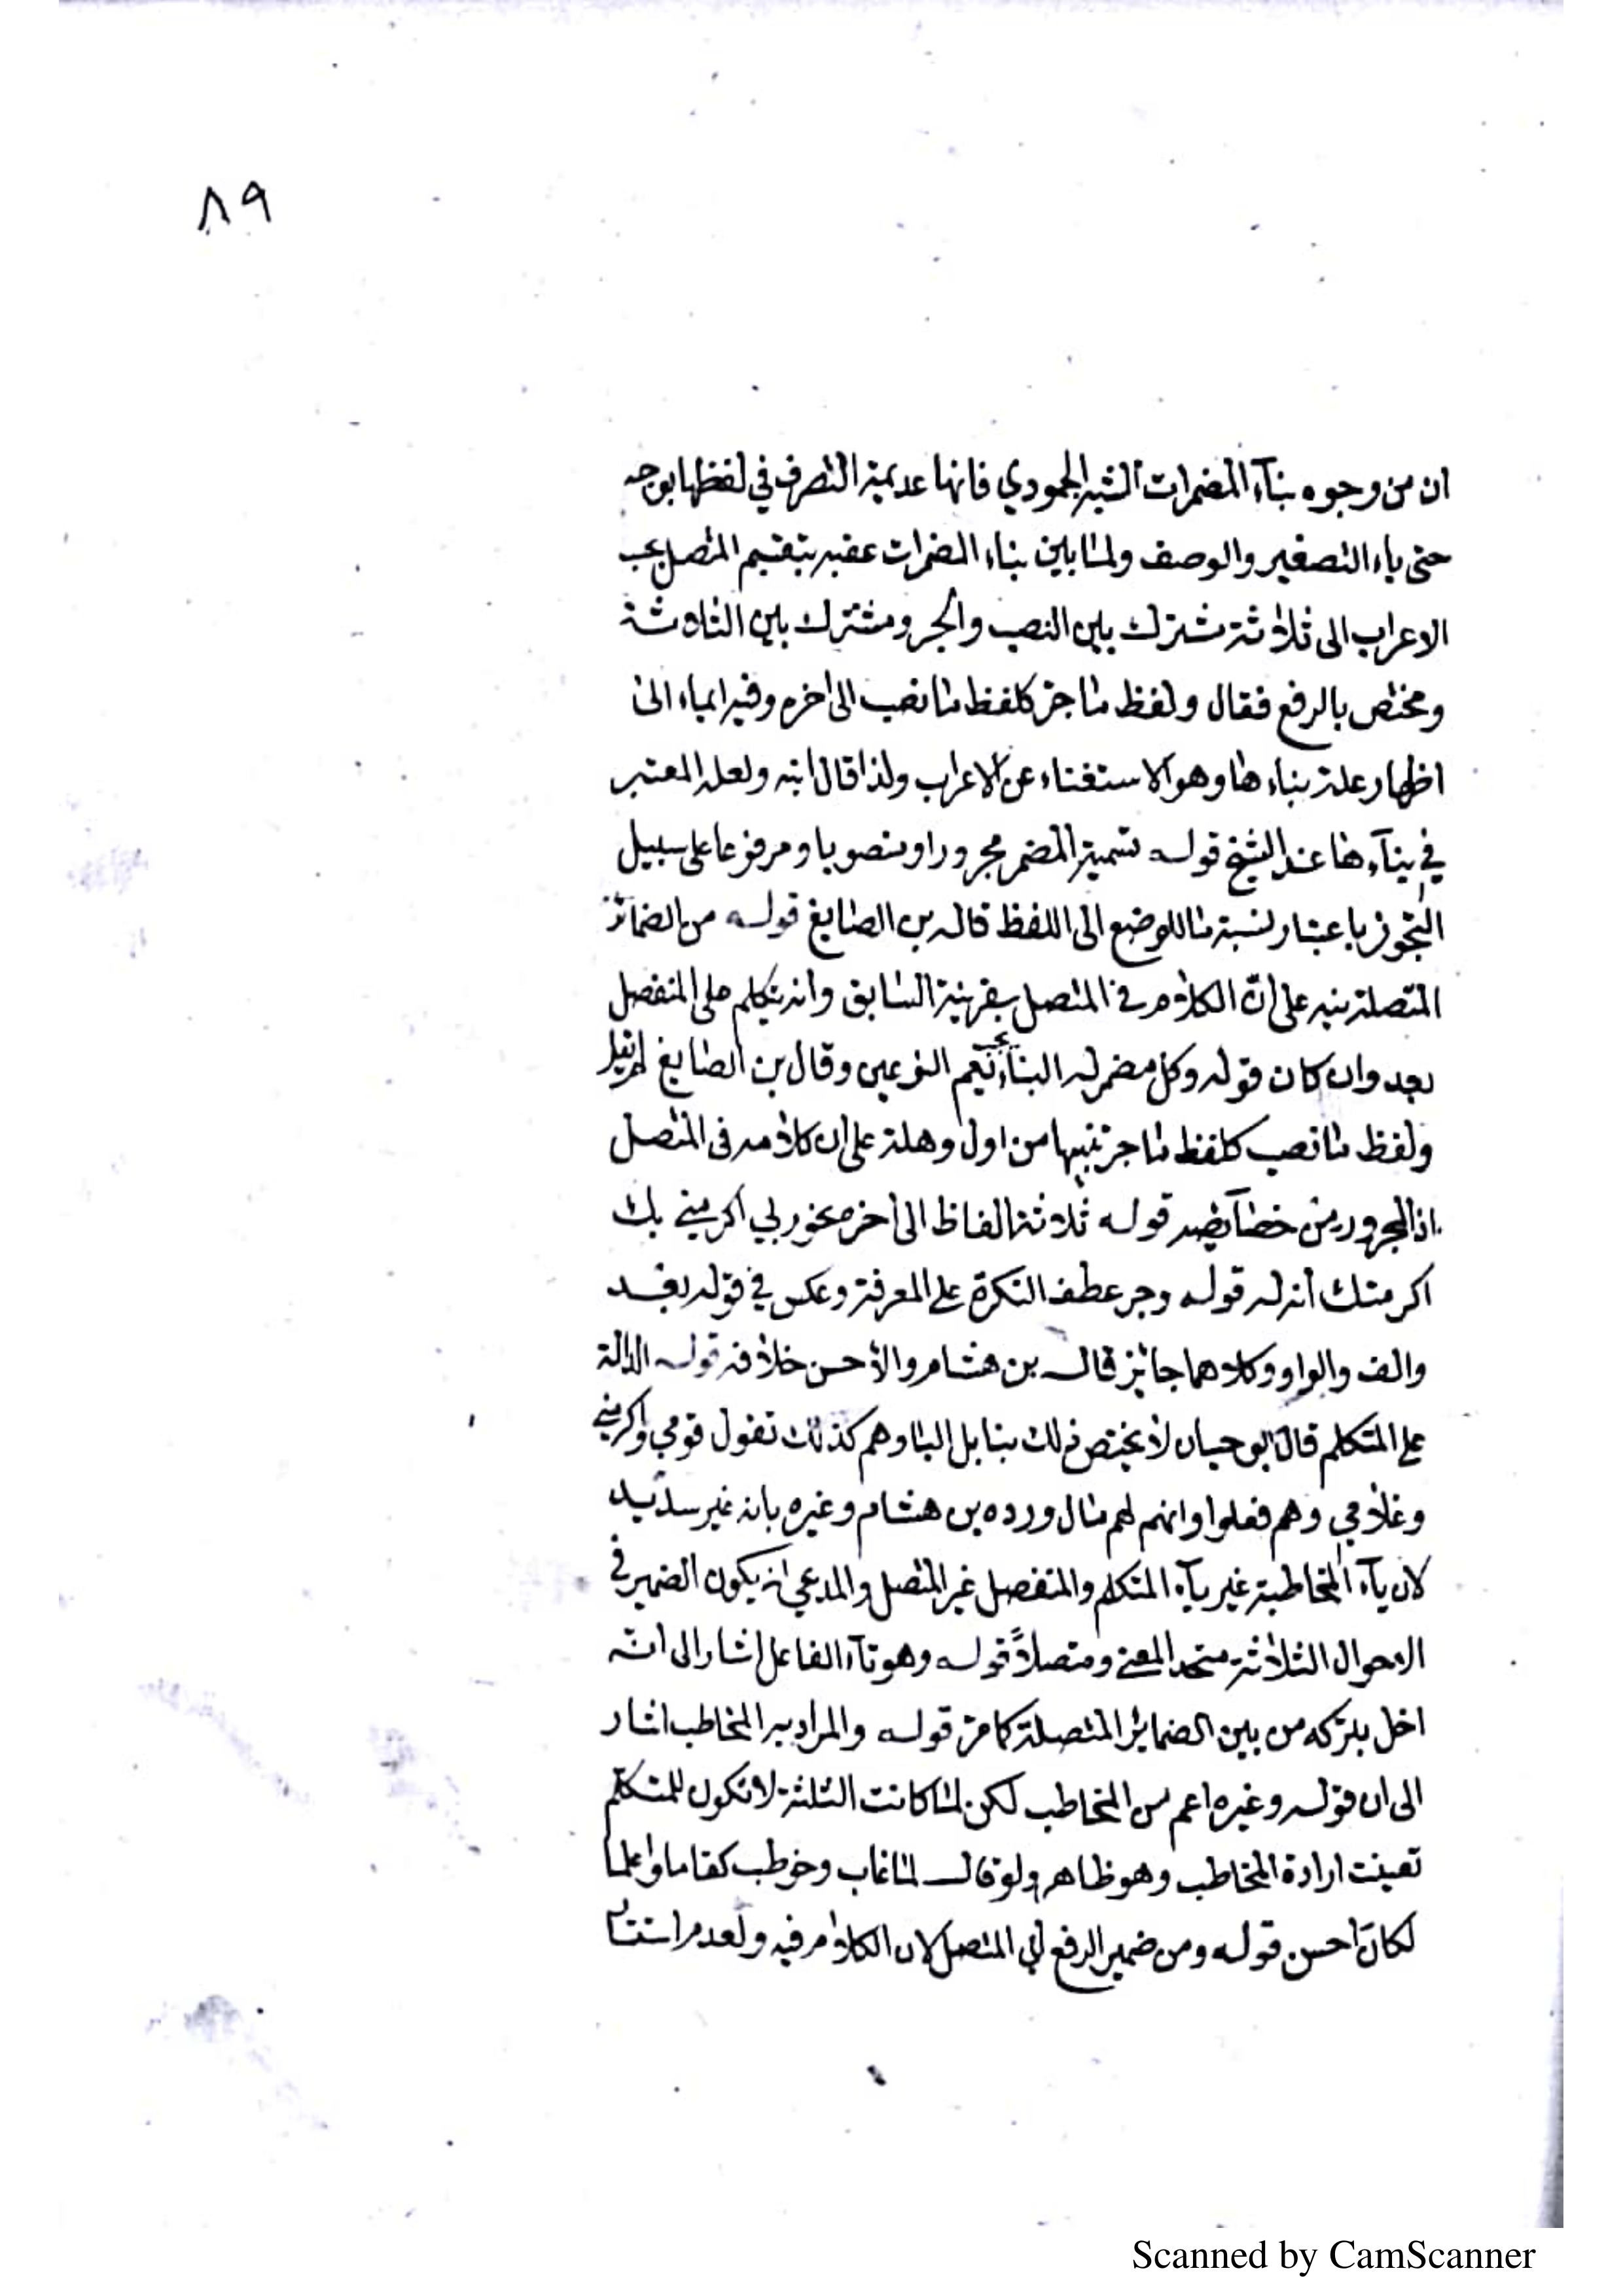 ٨٩
ان من وجوه بنآء المضمرات الشبه الجمودي فانها عديمة التصرف في لفظها بوجه
حتى ياء التصغير والوصف ولما بين بناء المضمرات عقبه بتقسيم المتصل بحسب
الاعراب الى ثلاثة مشترك بين النصب والجر ومشترك بين الثلاثة
ومختص بالرفع فقال ولفظ ما جر كلفظ ما نصب الى اخره وفيه ايماء الى
اظهار علة بناءها وهو الاستغناء عن الاعراب ولذا قال ابنه ولعله المعتبر
في بنآءها عند الشيخ قوله تسمية المضمر مجرورا ومنصوبا ومرفوعا على سبيل
التجوز باعتبار نسبة ما للوضع الى اللفظ قاله بن الصايغ قوله من الضمائر
المتصلة نبه على انّ الكلام في المتصل بقرينة السابق وانه يتكلم على المنفصل
بعد وان كان قوله وكل مضمر له البنآء يجب تعيم النوعين وقال بن الصايغ لم يقل
ولفظ ما نصب كلفظ ما جر تنبيها من اول وهلة على ان كلامه في المتصل
اذ المجرور من خصآيصه قوله ثلاثة الفاظ الى اخره نحو ربي اكرمني بك
اكرمتك انه له قوله وجر عطف النكرة على المعرفة وعكس في قوله بعد
والف والواو وكلاهما جائز قاله بن هشام والاحسن خلافه قوله الدالة
على المتكلم قال ابو حيان لا يختص ذلك بنا بل اليا وهم كذلك تقول قومي واكرمني
وغلامي وهم فعلوا وانهم لهم مال ورده بن هشام وغيره بانه غير سديد
لان يآء المخاطبة غير يآء المتكلم والمنفصل غير المتصل والمدعي انه يكون الضمير في
الاحوال الثلاثة متحد المعنى ومتصلاً قوله وهو تآء الفاعل اشار الى انّه
اخل بتركه من بين الضمائر المتصلة كما مر قوله والمراد به المخاطب اشار
الى ان قوله وغيره اعم من المخاطب لكن لما كانت الثلثة لا تكون للمتكلم
تعينت ارادة المخاطب وهو ظاهر ولو قال لما غاب وخوطب كقاما واعلما
لكان احسن قوله ومن ضمير الرفع اي المتصل لان الكلام فيه ولعدم استتا
Scanned by CamScanner